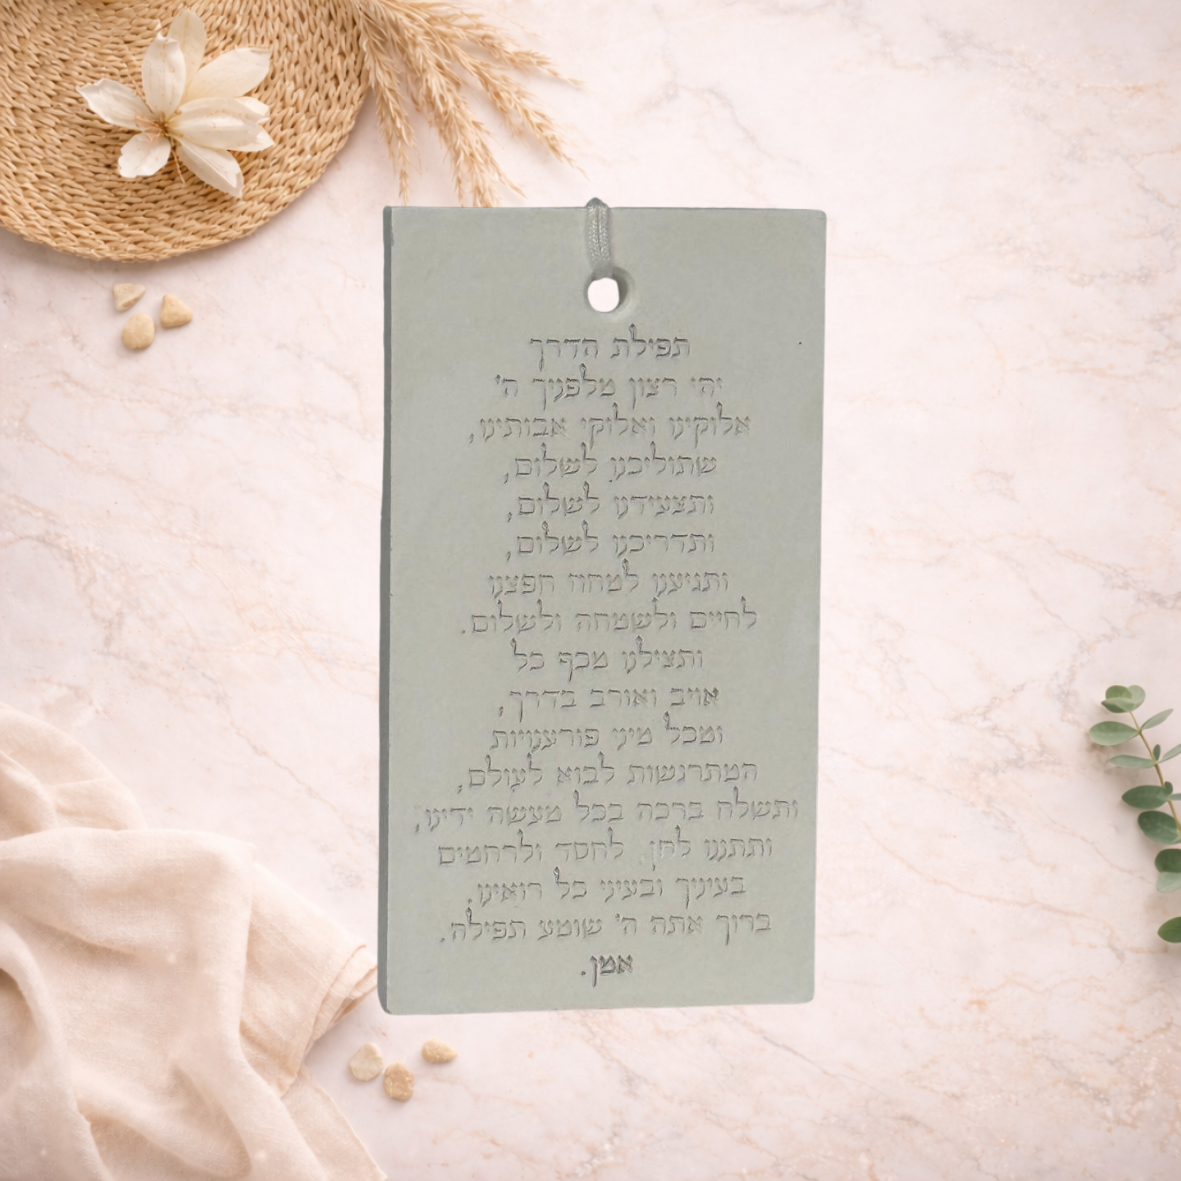 תפילת הדרך
יהי רצון מלפניך ה'
אלוקינו ואלוקי אבותינו,
שתוליכנו לשלום,
ותצעידנו לשלום,
ותדריכנו לשלום,
ותגיענו למחוז חפצנו
לחיים ולשמחה ולשלום.
ותצילנו מכף כל
אויב ואורב בדרך,
ומכל מיני פורענויות
המתרגשות לבוא לעולם,
ותשלח ברכה בכל מעשה ידינו,
ותתננו לחן לחסד ולרחמים
בעיניך ובעיני כל רואינו.
ברוך אתה ה' שומע תפילה.
אמן.